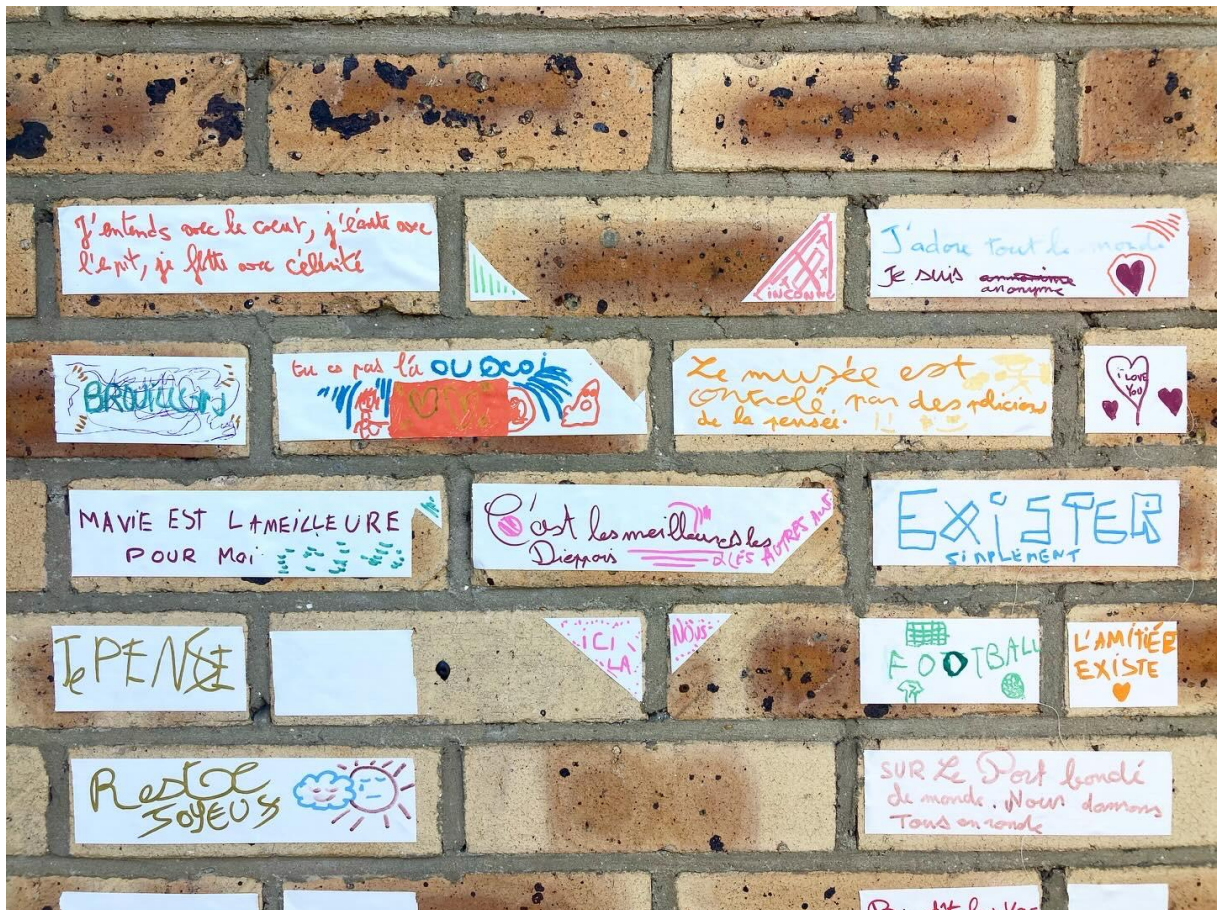 J'entends avec le cœur, j'écoute avec
l'esprit, je flâte avec célérité
INCONNU
J'adore tout le monde
Je suis anonyme
BROUILLON
tu es pas là OU QUOI
Le musée est
contrôlé par des policiers
de la pensée.
i LOVE
YOU
MA VIE EST LA MEILLEURE
POUR MOI
C'est les meilleures les
Dieppois
&LES AUTRES AUSSI
EXISTER
SIMPLEMENT
Je PENSE
ICI
LA
NOUS
FOOTBALL
L'AMITIÉR
EXISTE
Reste
JOYEUX
SUR Le Port bondé
de monde. Nous dansons
Tous en ronde